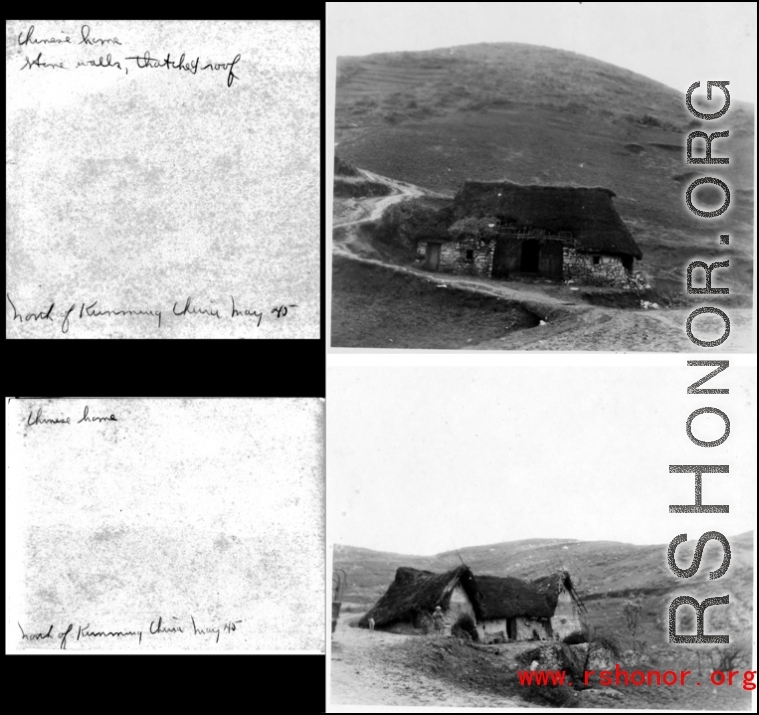 Chinese home
stone walls, thatched roof
North of Kunming China May 45
Chinese home
North of Kunming China May 45
RSHONOR.ORG
www.rshonor.org